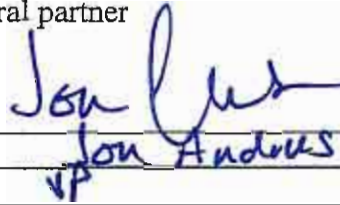 ral partner
Jon
Jon Andrus
VP